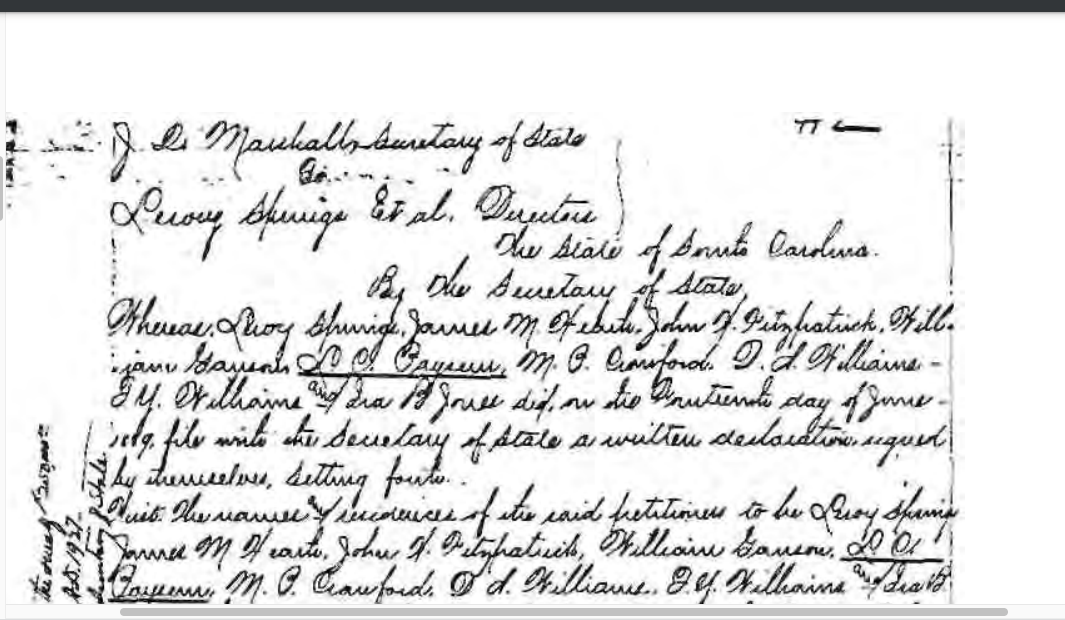 J. Q. Marshall, Secretary of State
To
Leroy Springs Et al. Directors
The State of South Carolina.
By the Secretary of State,
Whereas, Leroy Springs, James M. Heath, John F. Fitzpatrick, Will-
iam Ganson L. C. Payseur, M. P. Crawford. D. A. Williams -
T. Y. Williams and Ira B Jones did, on the day of June -
1889, file with the Secretary of State a written declaration signed
by themselves, setting forth.
First. The names and residences of the said petitioners to be Leroy Springs
James M Heath, John F. Fitzpatrick, William Ganson, L C.
Payseur, M. P. Crawford, D A. Williams, T. Y. Williams and Ira B.